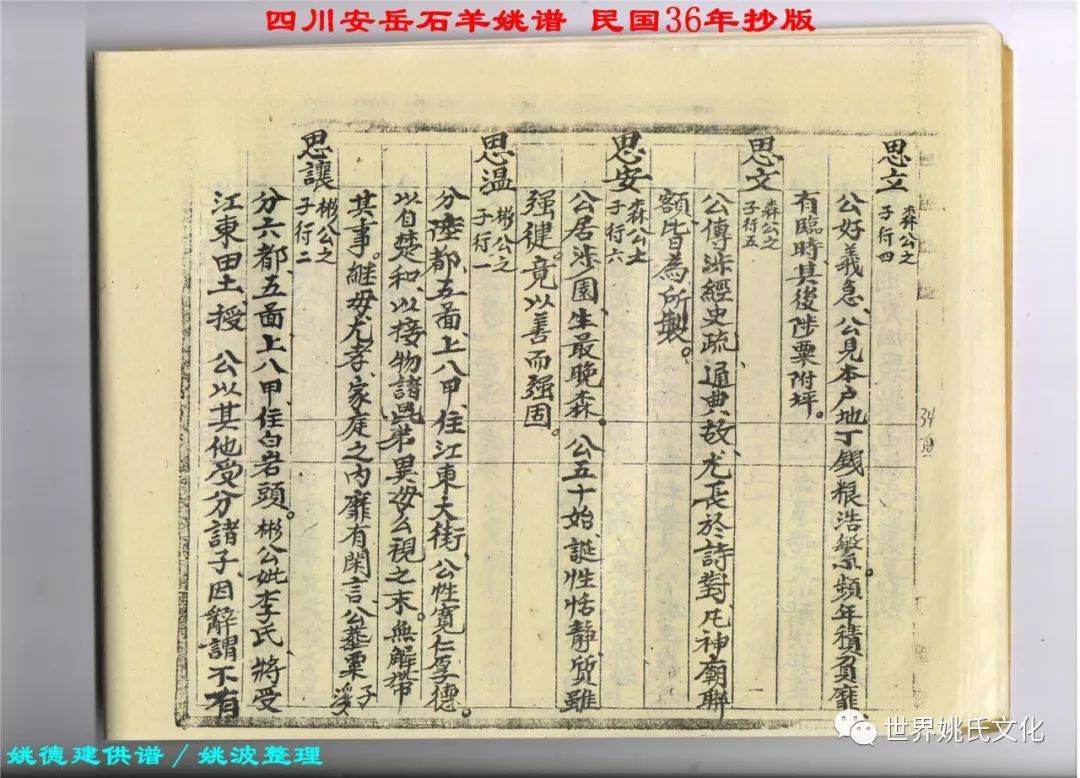 四川安岳石羊姚谱 民国36年抄版
思立
森公之
子行四
公好義急、公見本户地丁錢粮浩繁。頻年積負靡
有臨時其後陟粟附坪。
思文
森公之
子行五
公傳涉經史疏通典故、尤長於詩對、凡神廟聯
額皆為所製。
思安
森公之
子行六
公居涉園、生最晚森。公五十始誕性恬静、质雖
强健。竟以善而强固。
思温
彬公之
子行一
分陸都、五啚、上八甲、住江東大街、公性寬仁厚德。
以自楚和、以接物諸昆弟異母公視之末。無解帶
其事。継母尤孝、家庭之内靡有閑言、公葬栗子
湾
思讓
彬公之
子行二
分六都、五啚上八甲、住白岩頭。彬公妣李氏、將受
江東田土、授 公以其他受分諸子、因辭謂不有
34頁
世界姚氏文化
姚德建供谱／姚波整理